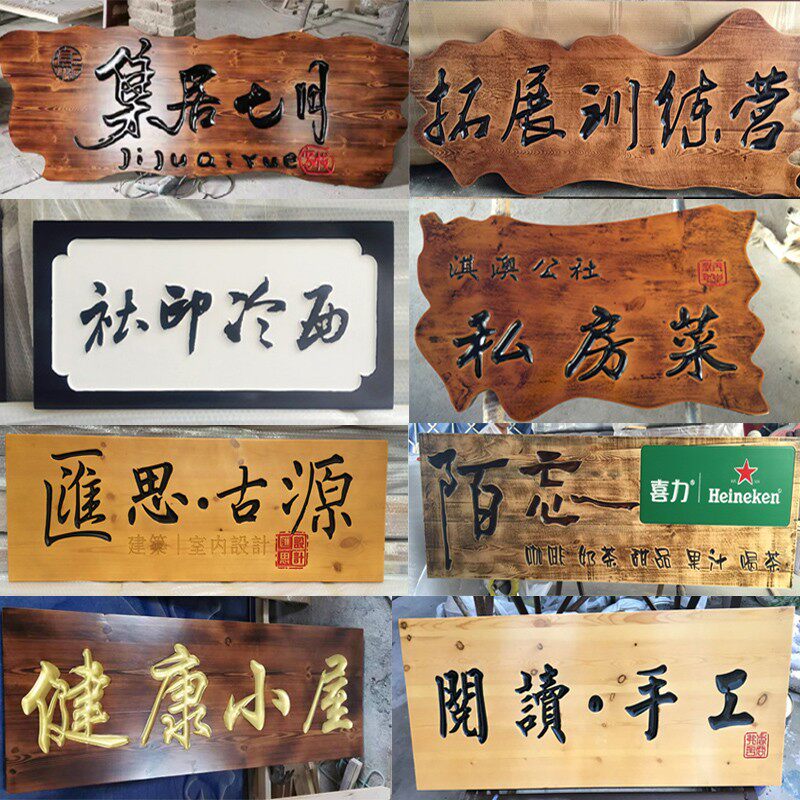 集居七月
JiJuQiYue
拓展训练营
西冷印社
淇澳公社
私房菜
匯思·古源
建築|室内設計
匯思設計
陌忘
喜力® Heineken®
咖啡 奶茶 甜品 果汁 喝茶
健康小屋
閱讀·手工